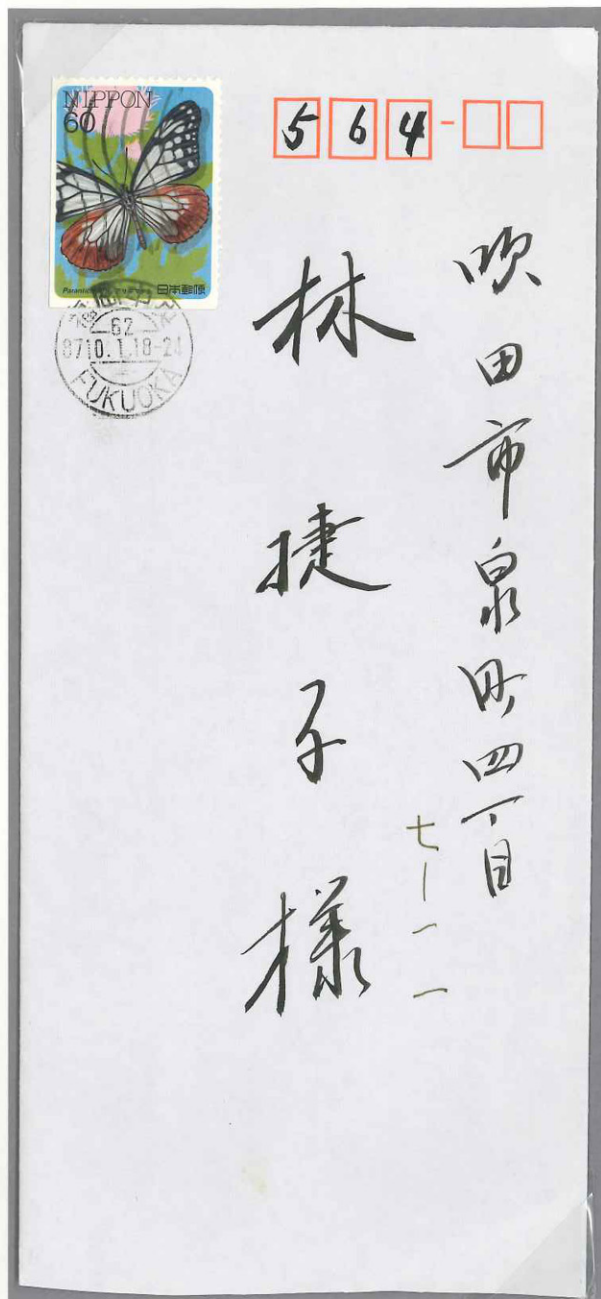 NIPPON
60
日本郵便
62
87 10.1.18-24
FUKUOKA
564-
吹田市泉町四丁目
七-一一
林捷子様